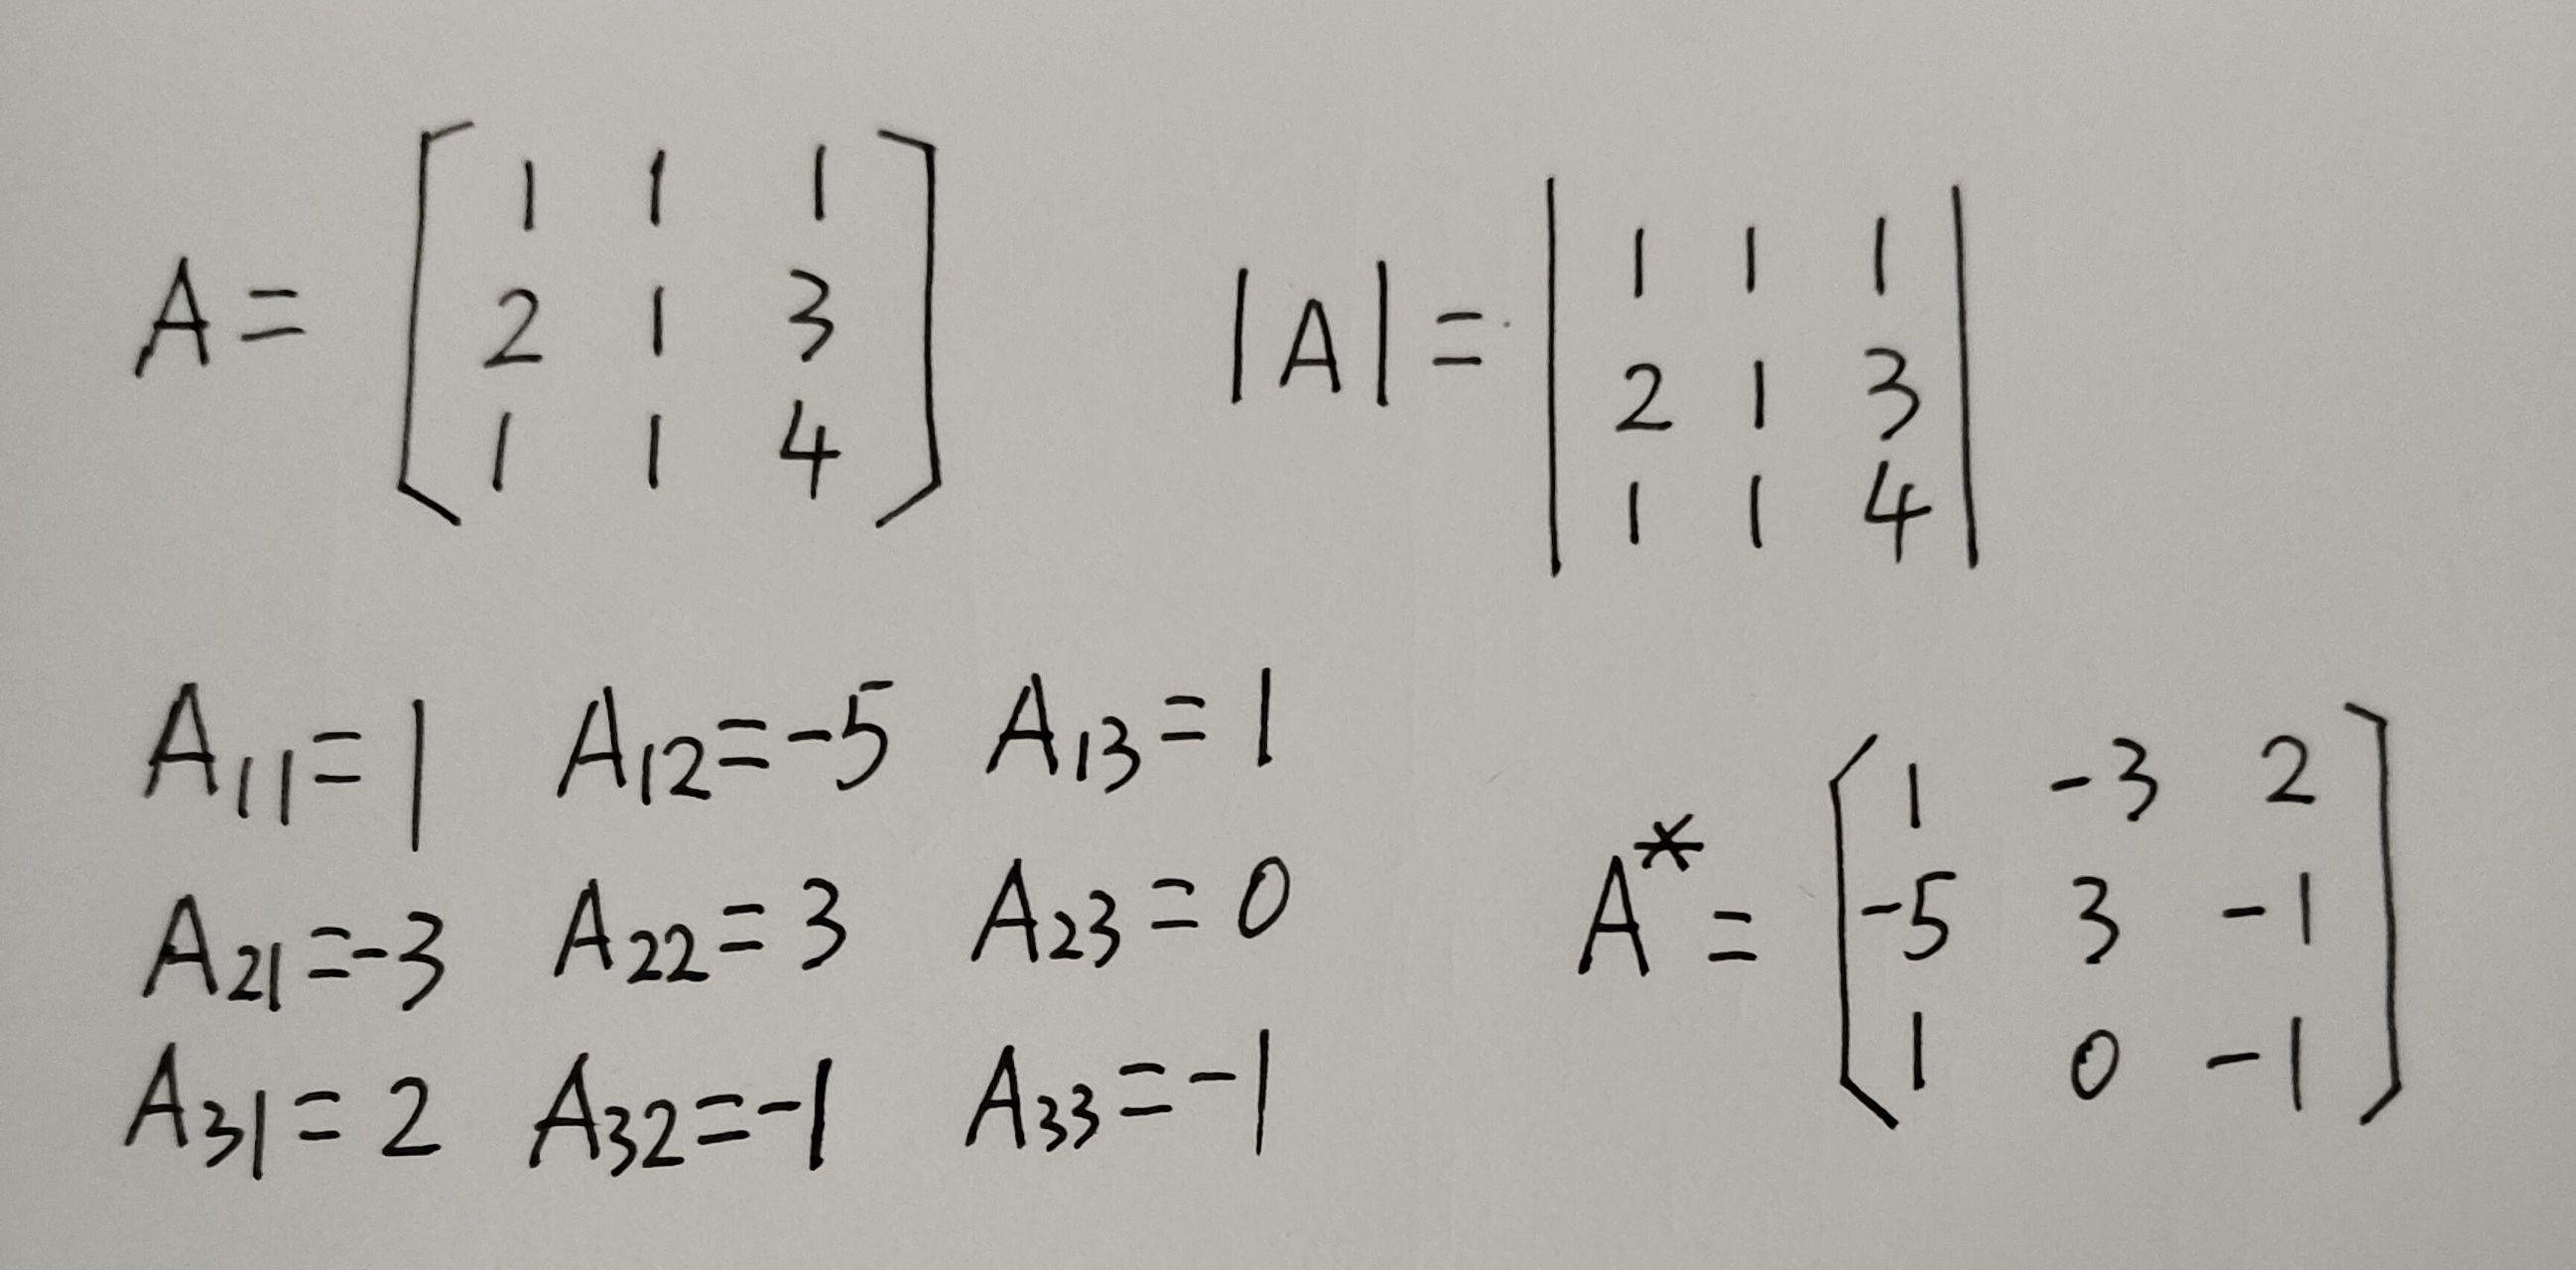 A = [ 1 1 1
2 1 3
1 1 4 ]
|A| = | 1 1 1
2 1 3
1 1 4 |
A₁₁ = 1 A₁₂ = -5 A₁₃ = 1
A₂₁ = -3 A₂₂ = 3 A₂₃ = 0
A₃₁ = 2 A₃₂ = -1 A₃₃ = -1
A* = [ 1 -3 2
-5 3 -1
1 0 -1 ]